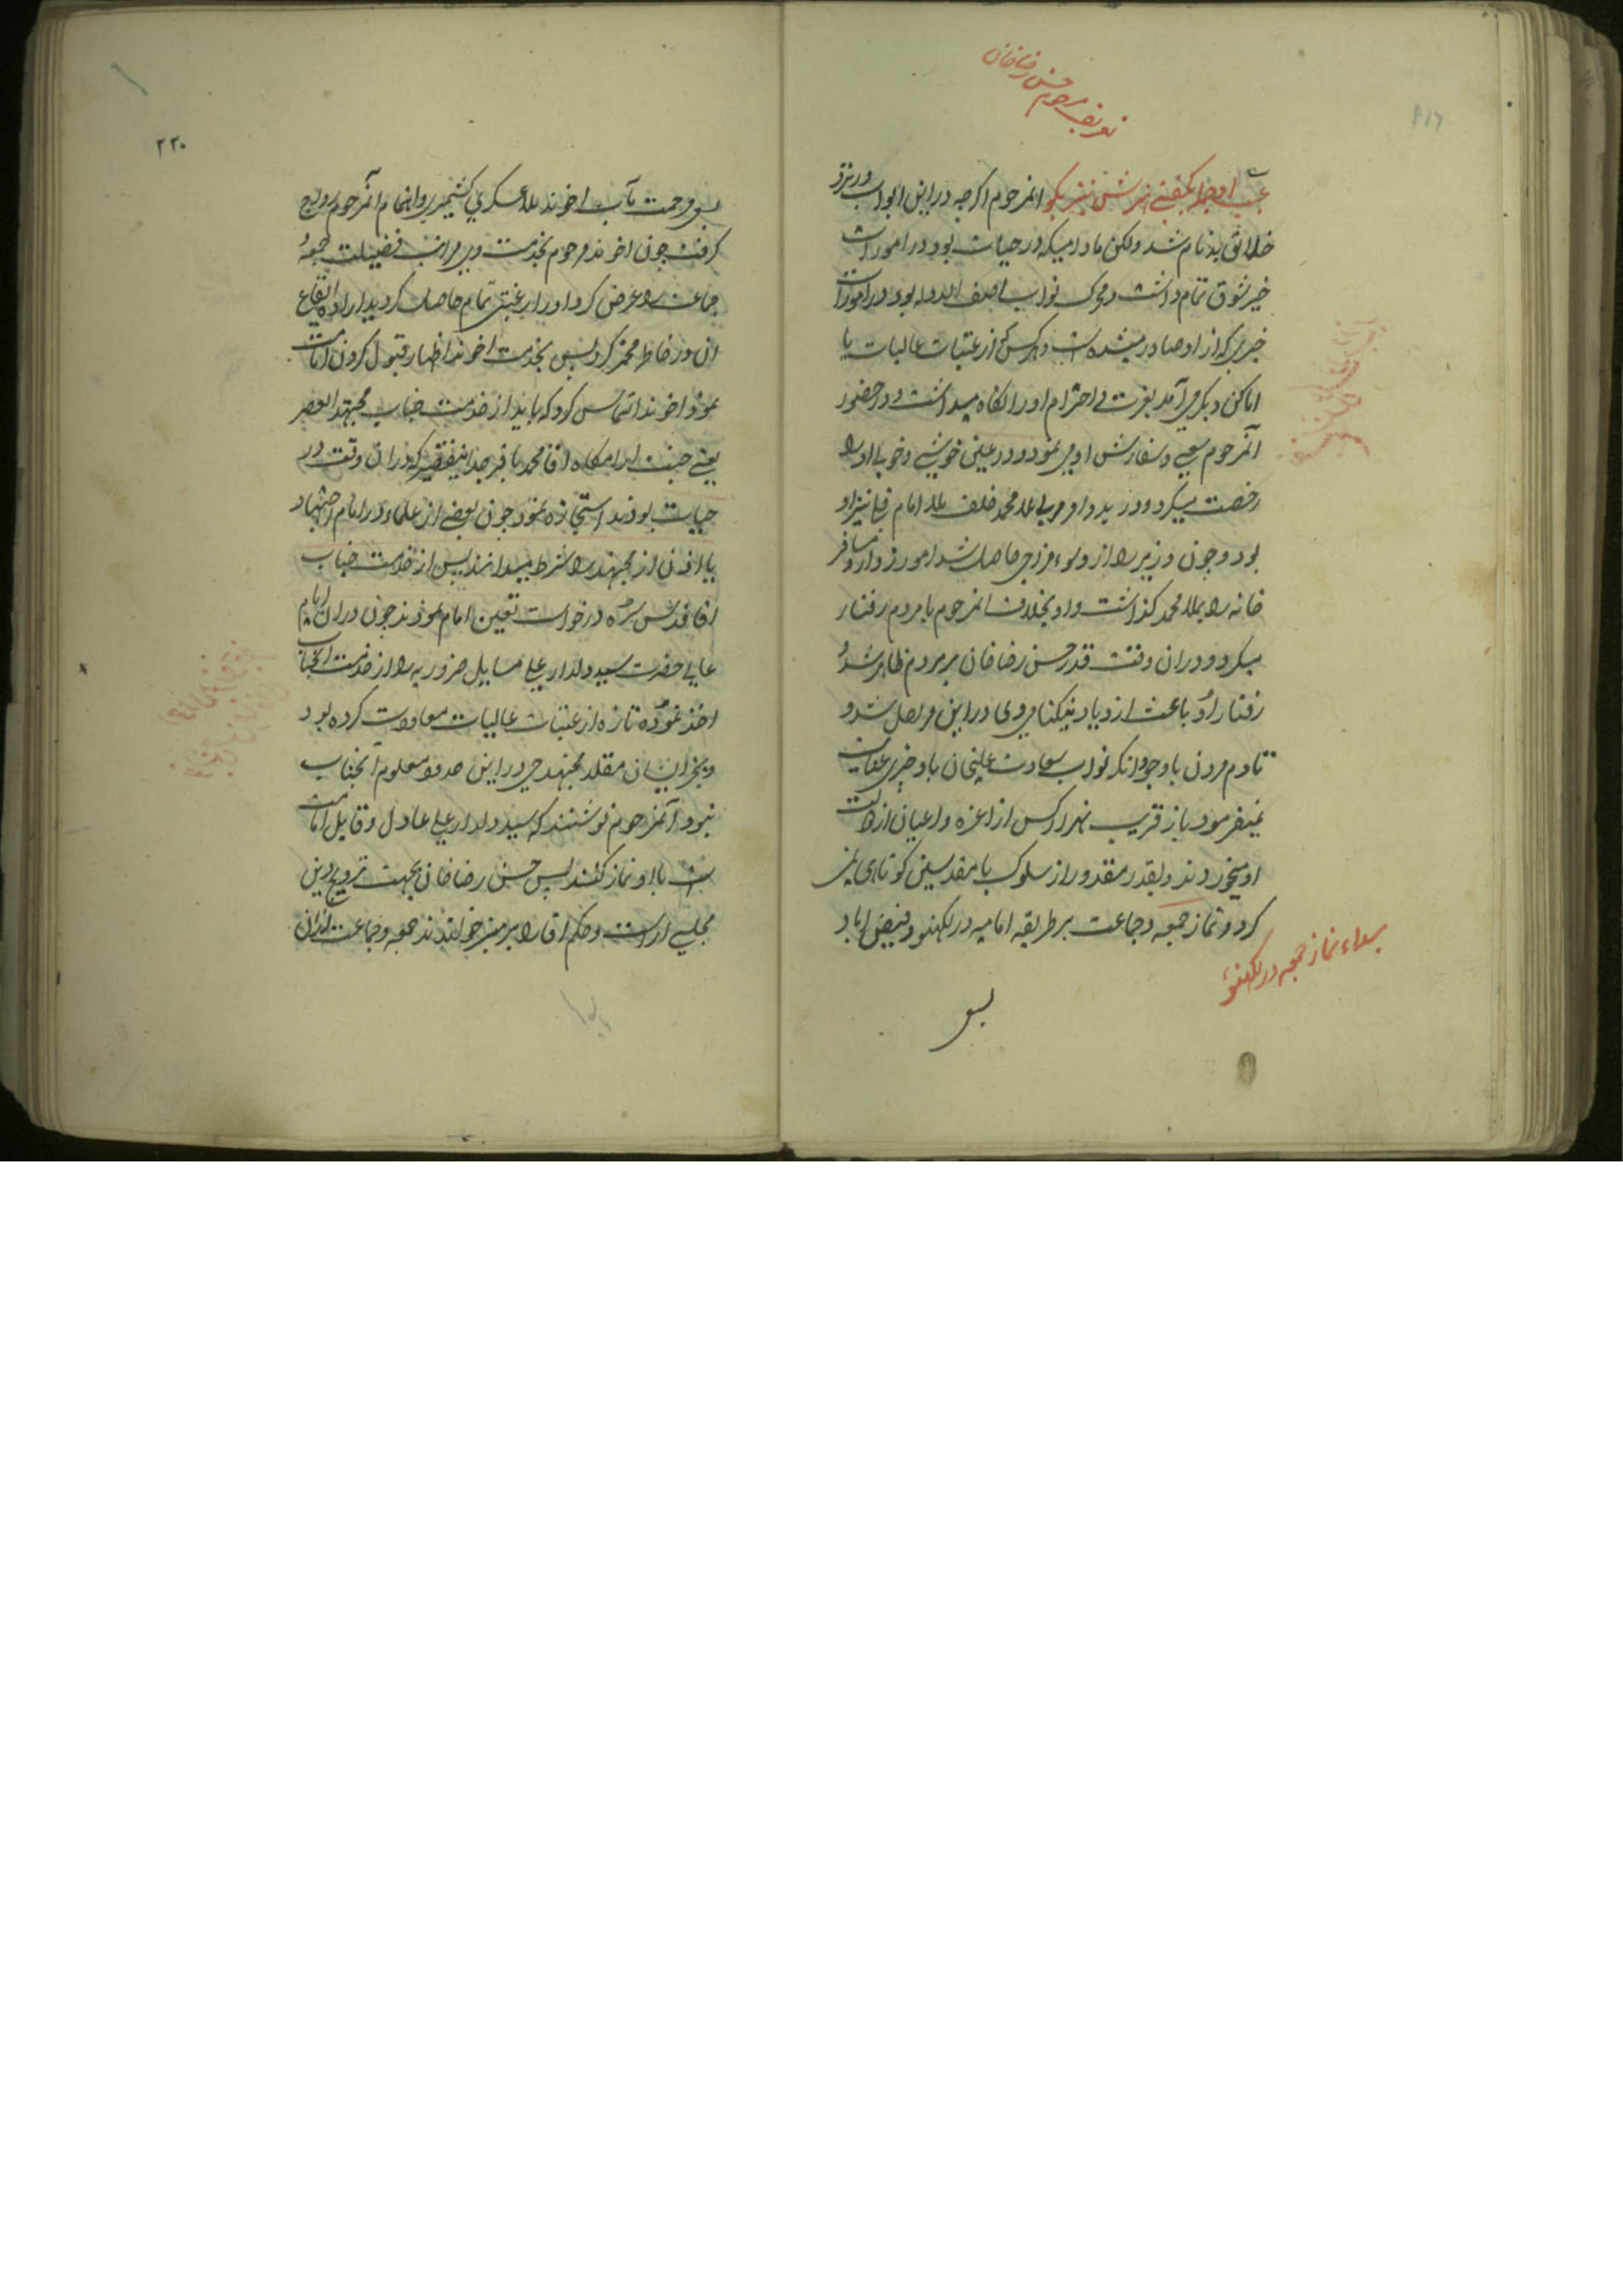 تعریف مرحوم حسن رضا خان
عیب او جمله بگفتی هنرش نیز بگو انمرحوم اگرچه در این ابواب در نزد
خلائق بدنام شد ولکن مادامیکه در حیات بود در امورات
خیر شوق تمام داشت و محرک نواب اصف الدوله بود در امورات
خیری که از او صادر میشده است و هر کس که از عتبات عالیات یا
اماکن دیگر می آمد بعزت و احترام او را نگاه میداشت و در حضور
آنمرحوم سعی و سفارش او می نمود و در عین خوشی و خوبی او را
رخصت میکرد و در بدو امر مربی ملا محمد خلف ملا امام نیز او
بود و چون وزیر را از و سوء مزاجی حاصل شد امور زوار و مسافر
خانه را بملا محمد گذاشت و او بخلاف انمرحوم با مردم رفتار
میکرد و در ان وقت قدر حسن رضا خان بر مردم ظاهر شد و
رفتار او باعث ازدیاد نیکنامی وی در این مراحل شد و
تا دم مردن با وجود انکه نواب سعادت علیخان باو چیزی عنایت
نمیفرمود باز قریب بهزار کس از اعزه و اعیان از دولت
او میخوردند و بقدر مقدور از سلوک با مقدسین کوتاهی نمی
کرد و نماز جمعه و جماعت بر طریقه امامیه در لکهنو و فیض اباد
بناء نماز جمعه در لکهنؤ
بسعی
۲۲۰
بسعی مرحمت مآب اخوند ملا عسکری کشمیری و اهتمام آنمرحوم رواج
گرفت چون اخوند مرحوم بخدمت وی مراتب فضیلت جمعه و
جماعت را عرض کرد او را رغبتی تمام حاصل گردید اراده ایقاع
ان در خاطر مخمر کرد پس بخدمت اخوند اظهار قبول کردن امامت
نمود و اخوند التماس کرد که باید از خدمت جناب مجتهد العصر
یعنی جنت ارامگاه اقا محمد باقر جد اینفقیر که در ان وقت در
حیات بودند استجازه نمود چون بعضی از علماء در امام اجتهاد
یا اذن از مجتهد را شرط میدانند پس از خدمت جناب
اقا قدس سره درخواست تعین امام نمودند چون در ان ایام
عالی حضرت سید دلدار علی مسایل ضروریه را از خدمت انجناب
اخذ نموده تازه از عتبات عالیات معاودت کرده بود
و بجز ایشان مقلد مجتهد حی در این حدود معلوم آنجناب
نبود آنمرحوم نوشتند که سید دلدار علی عادل و قابل امامت
است با او نماز کنند پس حسن رضا خان بجهت ترویج دین
مجلسی اراست و حکم اقا را بر منبر خواندند جمعه و جماعت از ان